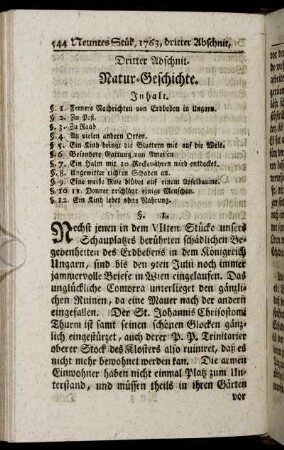 544 Neuntes Stük, 1763, dritter Abschnit,
Dritter Abschnit.
Natur-Geschichte.
Inhalt.
§ 1. Fernere Nachrichten von Erdbeben in Ungarn.
§ 2. Zu Pest.
§ 3. Zu Raab
§ 4. An vielen andern Orten.
§ 5. Ein Kind bringt die Blattern mit auf die Welt.
§ 6. Besondere Gattung von
§ 7. Ein Halm mit 10 Rockenähren wird entdecket.
§ 8. Ungewitter richten Schaden an.
§ 9. Eine weiße Rose blühet auf einem Apfelbaume.
§ 10 11. Donner erschlägt einige Menschen.
§ 12. Ein Kind lebet ohne Nahrung.
§. 1.
Nechst jenen in dem VIIten Stücke unsers
Schauplatzes berührten schädlichen Be-
gebenheiten des Erdbebens in dem Königreich
Ungarn, sind bis den 9ten Julii noch immer
jammervolle Briefe in Wien eingelaufen. Das
unglückliche Comorra unterlieget den gänzli-
chen Ruinen, da eine Mauer nach der andern
eingefallen. Der St. Johannis Chrisostomi
Thurm ist samt seinen schönen Glocken gänz-
lich eingestürzt, auch derer P. P. Trinitarier
oberer Stock des Klosters also ruiniret, daß es
nicht mehr bewohnet werden kan. Die armen
Einwohner haben nicht einmal Platz zum Un-
terstand, und müssen theils in ihren Gärten
vor